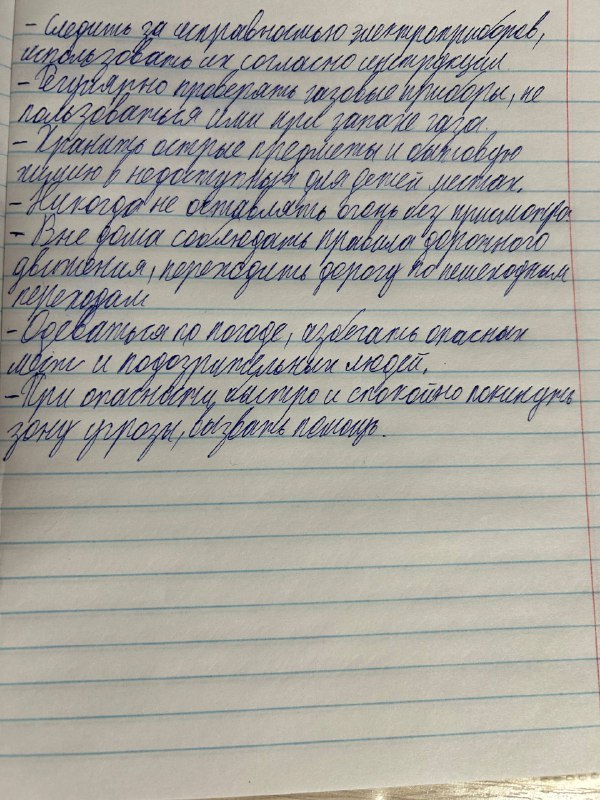 - Следить за исправностью электроприборов,
использовать их согласно инструкции
- Регулярно проверять газовые приборы, не
пользоваться ими при запахе газа.
- Хранить острые предметы и бытовую
химию в недоступных для детей местах.
- Никогда не оставлять огонь без присмотра
- Вне дома соблюдать правила дорожного
движения, переходить дорогу по пешеходным
переходам
- Одеваться по погоде, избегать опасных
мест и подозрительных людей.
- При опасности быстро и спокойно покинуть
зону угрозы, вызвать помощь.